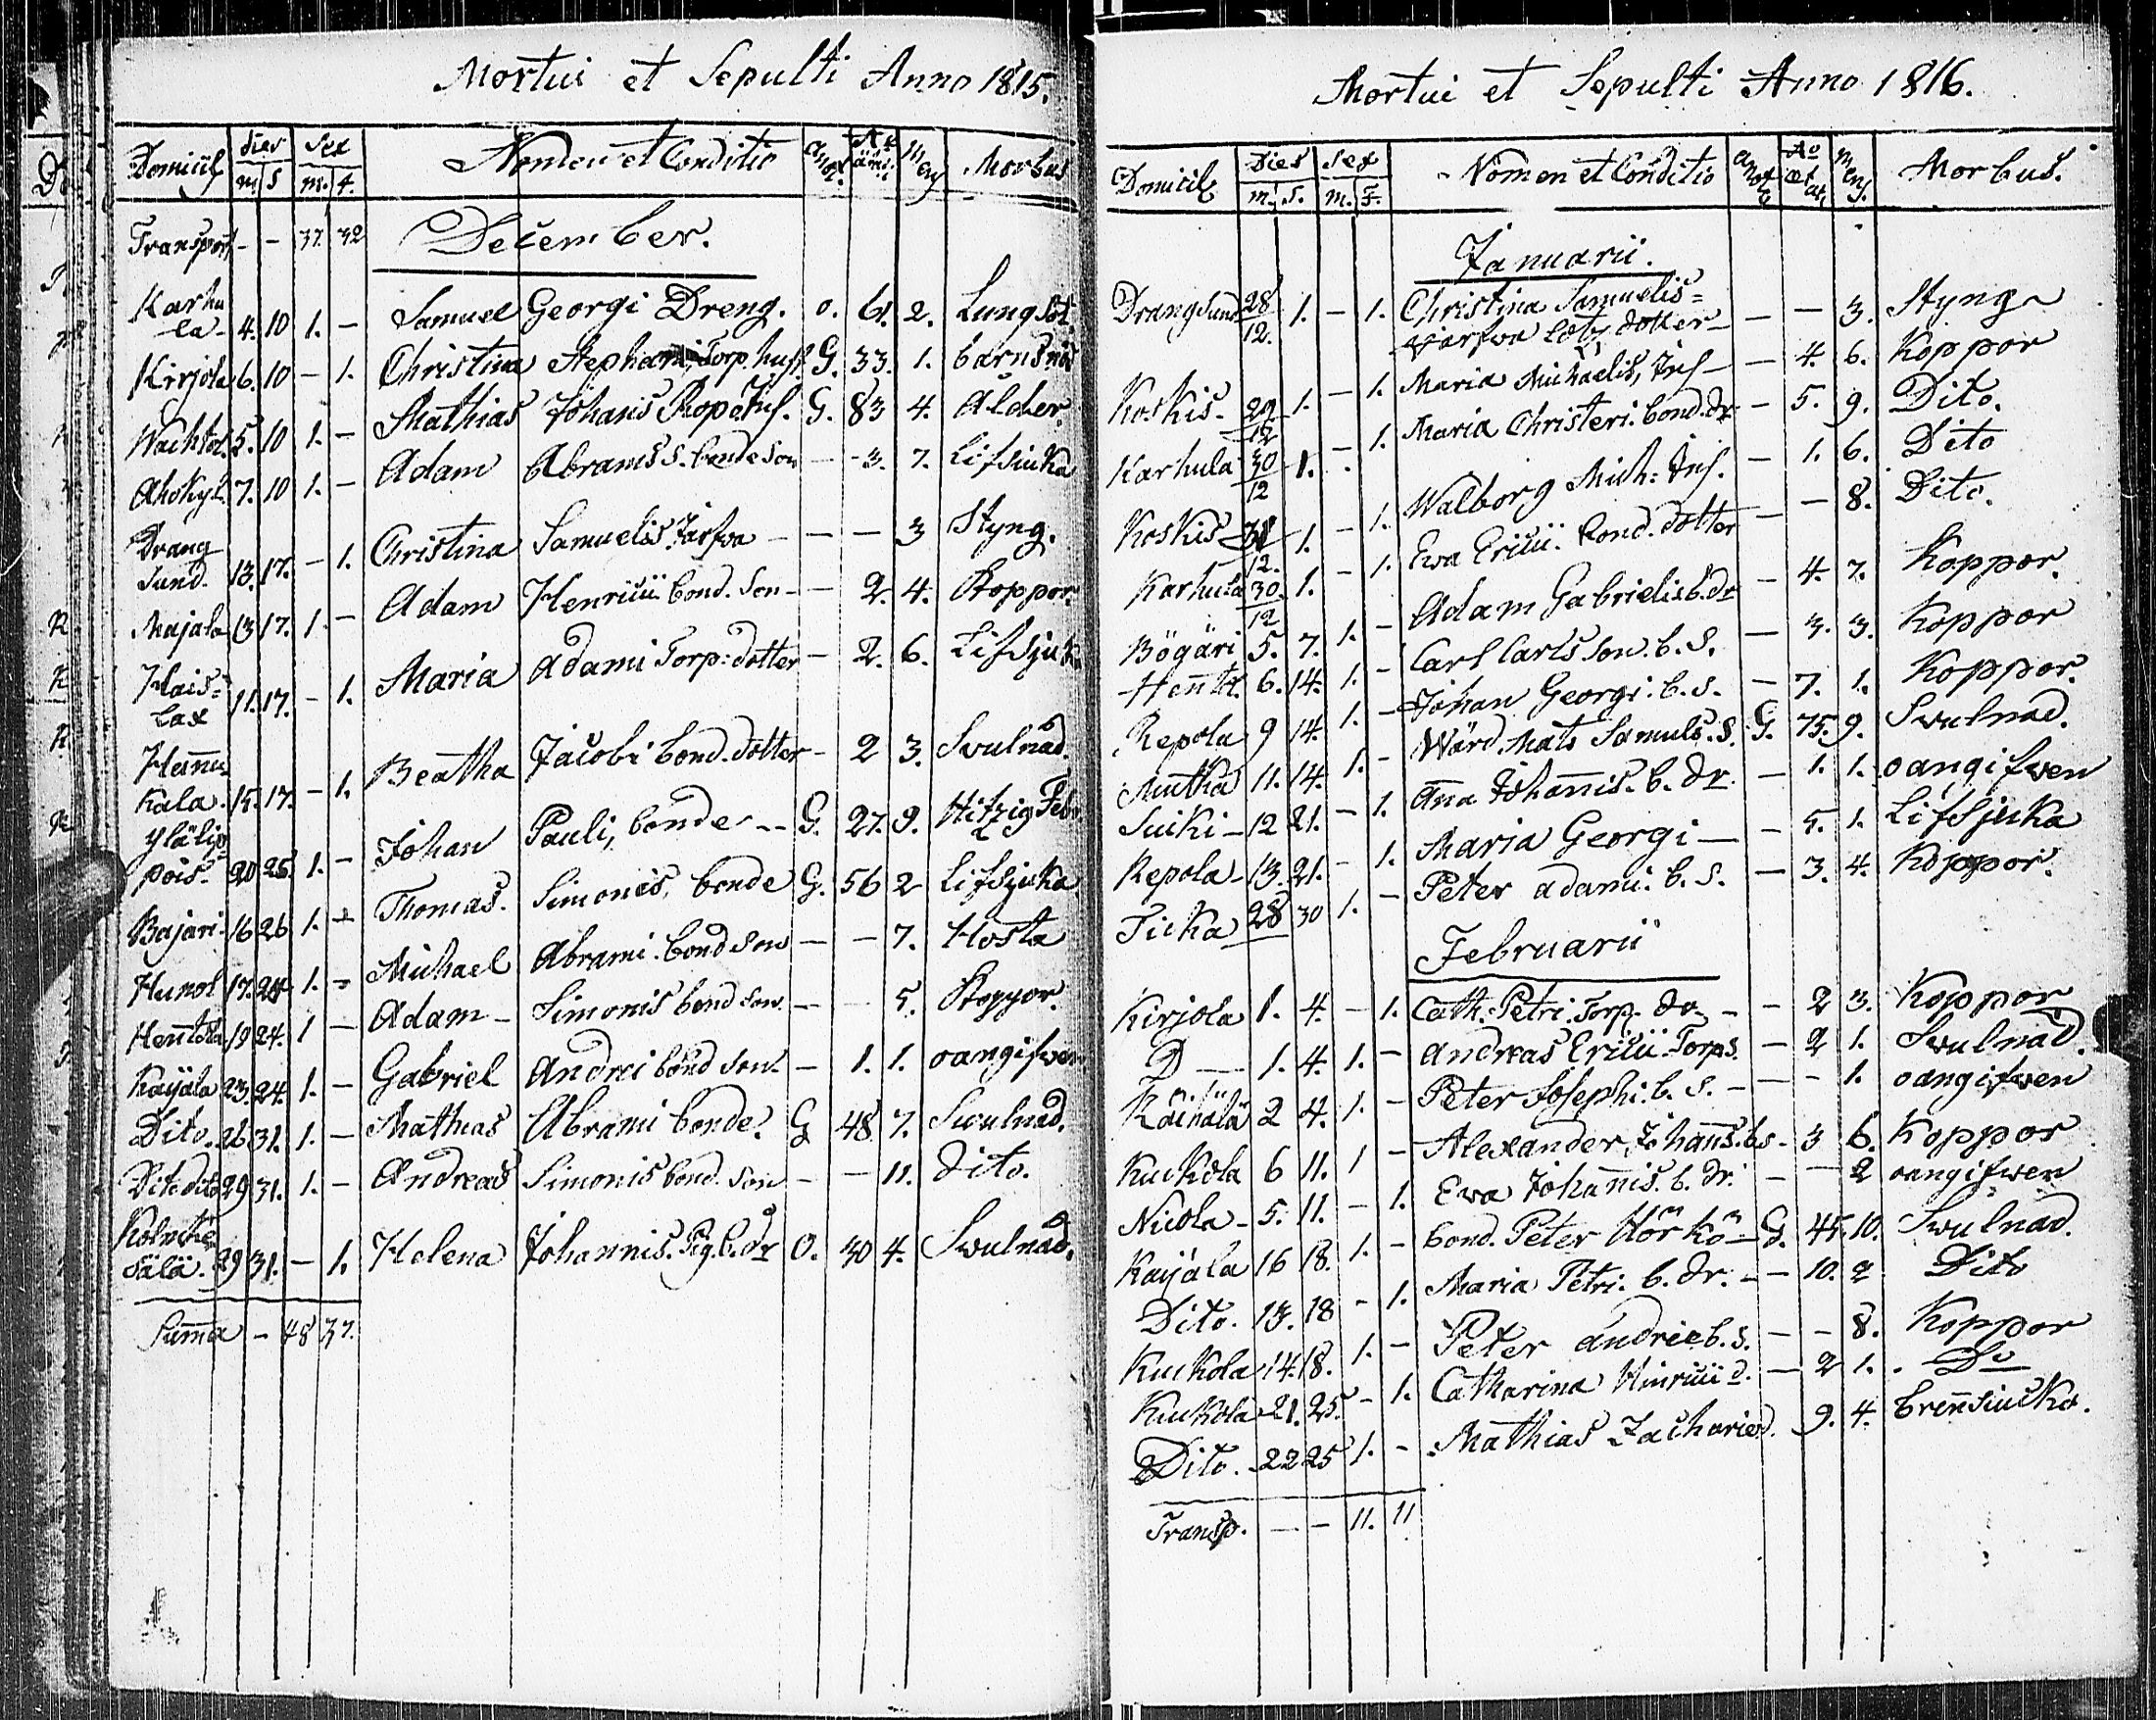 Mortui et Sepulti Anno 1815.
Domicil Dies Sex Nomen et Conditio annot. Mens Morbus
m. S m. f.
Transport - - 37. 32 December.
Karhu
la 4. 10 1. - Samuel Georgi Dreng. o. 61. 2. Lungsot
Kirjola 6. 10 - 1. Christina Stephani Torp. hust G. 33. 1. barnsnöd
Wachtol. 5. 10 1. - Mathias Johanis Ropo Inh. G. 83 4. Ålder
Ahokyl. 7. 10 1. - Adam Abrams S. bonde Son - 3. 7. Lifsiuka
Drang
Sund. 13. 17. - 1. Christina Samuelis Järfwa - - - 3 Styng.
Majala 13 17. 1. - Adam Henricii bond. Son - - 2. 4. Koppor.
Hais=
lax 11. 17. - 1. Maria Adami Torp: dotter - 2. 6. Lifsjuk
Hannu
Kala 15. 17. - 1. Beatha Jacobi bond. dotter - 2 3. Swulnad.
YläUp
pois. 20 25. 1. - Johan Pauli, bonde - - G. 27. 9. Hitzig Feb
Bajari 16 26 1. - Thomas. Simonis, bonde G. 56 2 Lifsjuka
Hunol 17. 24 1. - Michael Abrami. bond Son - - 7. Hosta
Hentola 19 24. 1 - Adam - Simonis bond Son. - - 5. Koppor.
Kaijala 23. 24. 1. - Gabriel Andrei bond Son. - 1. 1. oangifwen
Dito. 26 31. 1. - Mathias Abrami bonde. G 48 7. Swulnad.
Dito dito 29 31. 1. - Andreas Simonis bond. Son - - 11. Dito.
Kolmike
sälä. 29 31. - 1. Helena Johannis. Pig. b. dr O. 30 4. Swulnad.
Summa - 48 37.
Mortui et Sepulti Anno 1816.
Domicil Dies Sex Nomen et Conditio Annot Ao ætat. Mens. Morbus.
m. S. m. F.
Januarii.
Drangsund 28/12. 1. - 1. Christina Samuelis=
Järfwa dotter - - - 3. Styng
Koskis. 29/12 1. - 1. Maria Michaelis, Inh - - 4. 6. Koppor
Karhula 30/12 1. - 1. Maria Christeri. bond. dr - 5. 9. Dito.
Koskis 31/12. 1. - 1. Walborg Mich: Inh. - 1. 6. Dito
Karhula 30/12 1. - 1. Ewa Ericii. bond. dotter - - 8. Dito.
Bögäri 5. 7. 1. - Adam Gabrielis b. dr - 4. 7. Koppor.
Hentol. 6. 14. 1. - Carl Carls Son. b. S. - 3. 3. Koppor
Repola 9 14. 1. - Johan Georgi. b. s. - 7. 1. Koppor.
Mutka 11. 14. 1. - Wärd. Mats Samuls. S. G. 75. 9. Swulnad.
Suiki - 12 21. - 1. Anna Johannis. b. dr. - 1. 1. oangifwen
Repola - 13. 21. - 1. Maria Georgi - - 5. 1. Lifsjuka
Ticka 28 30 1. - Peter Adami. b. s. - 3. 4. Koppor.
Februarii
Kirjola 1. 4. - 1. Cath. Petri. Torp. do - - 2 3. Koppor
D - 1. 4. 1. - Andreas Ericii Torp S. - 2 1. Swulnad.
Käinälä 2 4. 1. - Peter Josephi. b. S. - - - 1. oangifwen
Kuckola 6 11. 1 - Alexander, Johans. bs - 3 6. Koppor
Nicola - 5. 11. - 1. Ewa Johannis. b. dr. - - 2 oangifwen
Kaijala 16 18. 1. - bond. Peter Hörkö - G. 45. 10. Swulnad.
Dito. 13. 18 - 1. Maria Petri. b. dr. - - 10. 2 Dito
Kuckola 14. 18. 1. - Peter Andrie b. s. - - 8. Koppor
Kuckola 21. 25. - 1. Catharina Hinricii d. - 2 1. Do
Dito. 22 25 1. - Mathias Zacharie. 9. 4. brennsiucka.
Transp. - - 11. 11